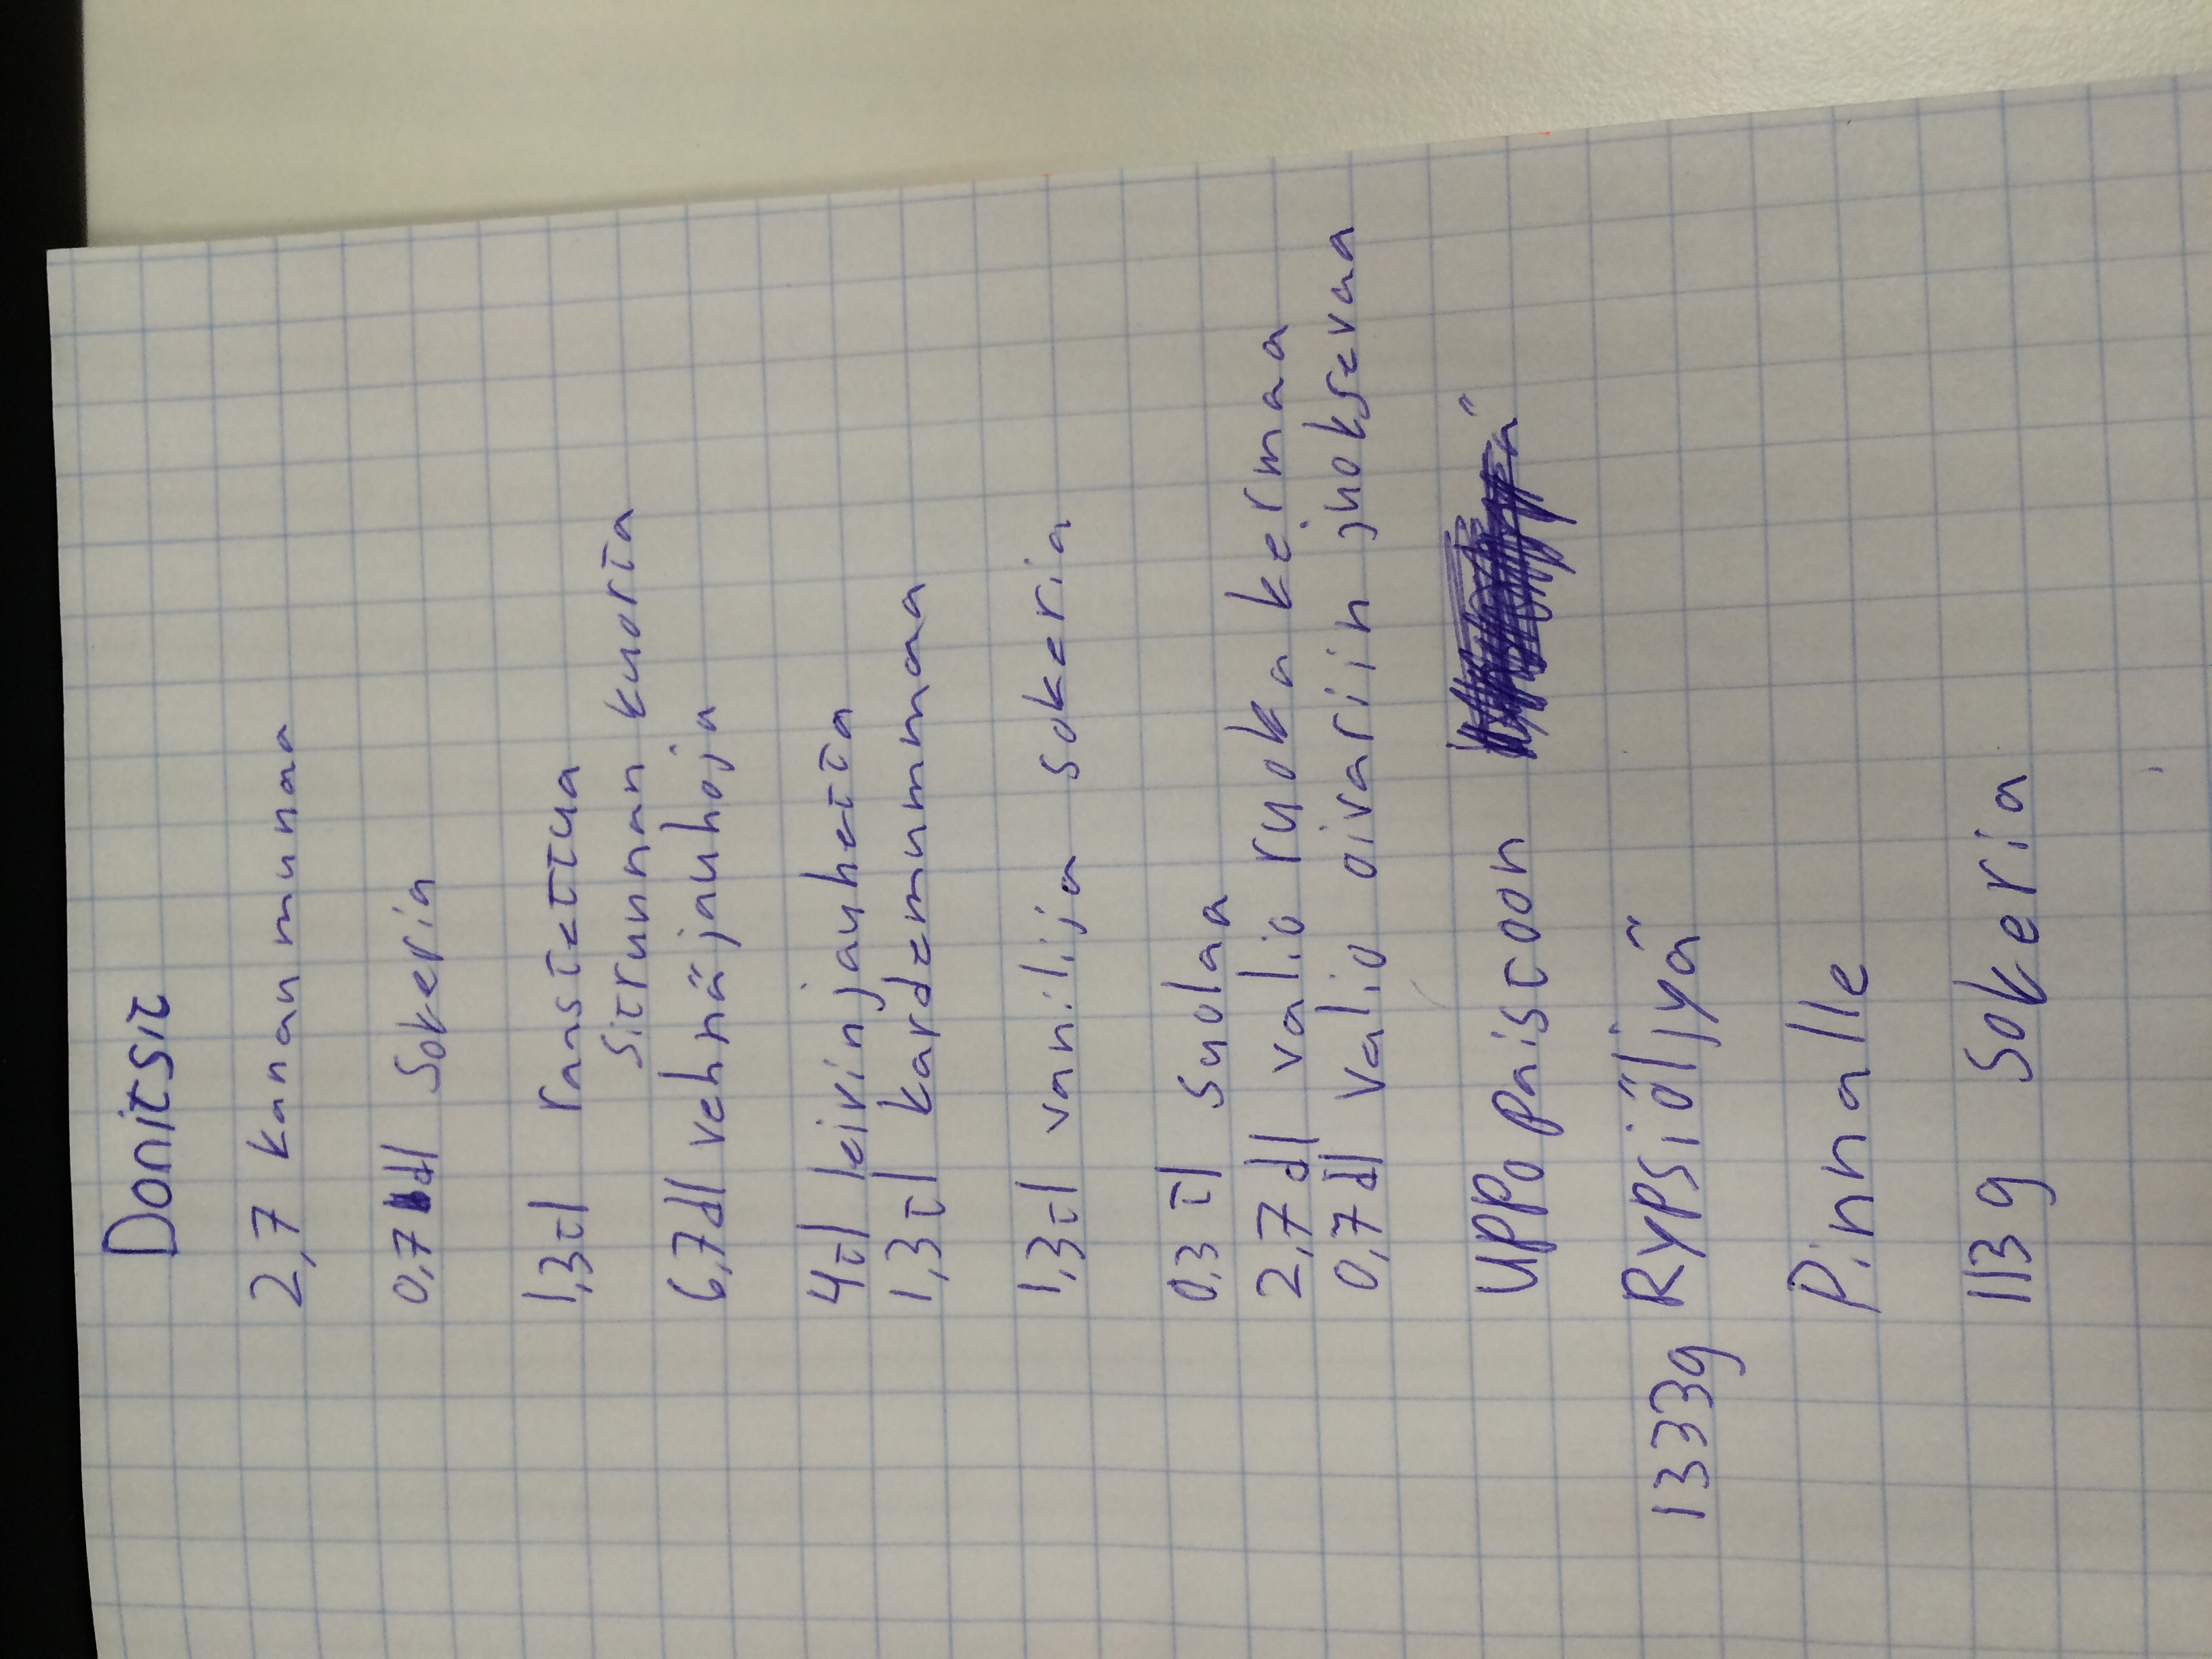 Donitsit
2,7 kananmunaa
0,7 dl Sokeria
1,3tl raastettua
sitrunnan kuorta
6,7dl vehnäjauhoja
4tl leivinjauhetta
1,3tl kardemummaa
1,3tl vanilija sokeria
0,3 tl suolaa
2,7 dl valio ruoka kermaa
0,7 dl valio oivariin juoksevaa
UPPo Paistoon
1333g Rypsiöljyä
Pinnalle
113 g Sokeria